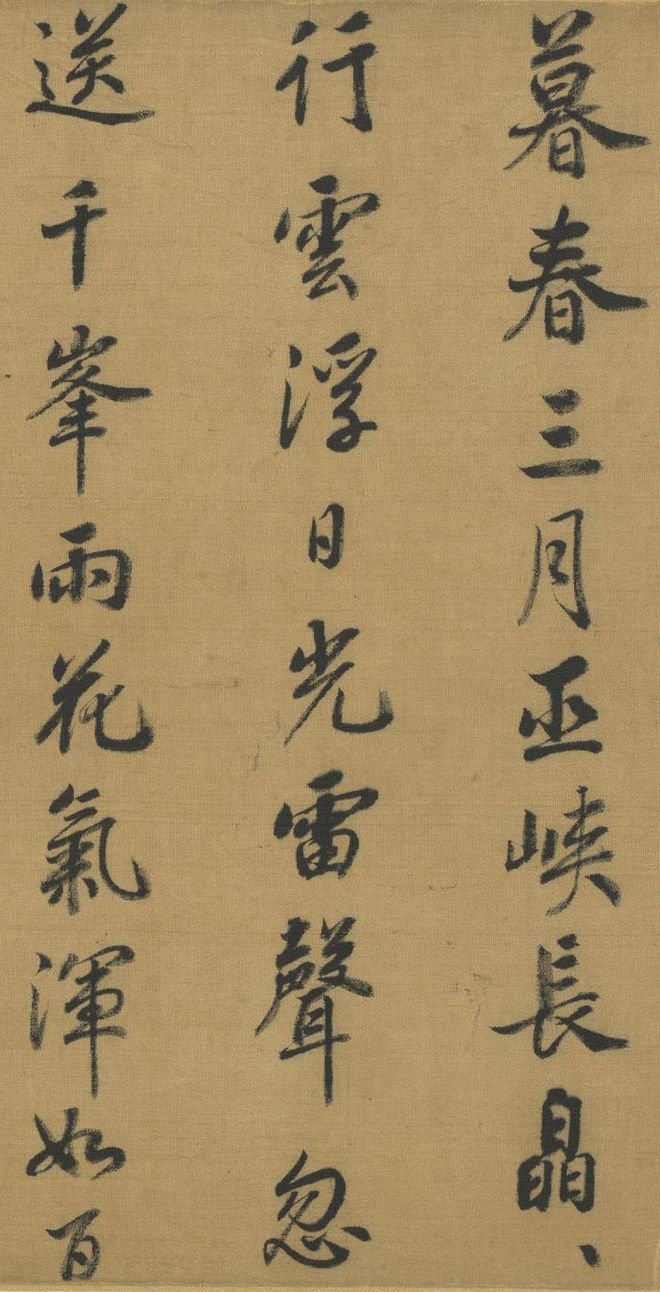 暮春三月巫峽長皛、
行雲浮日光雷聲忽
送千峯雨花氣渾如百